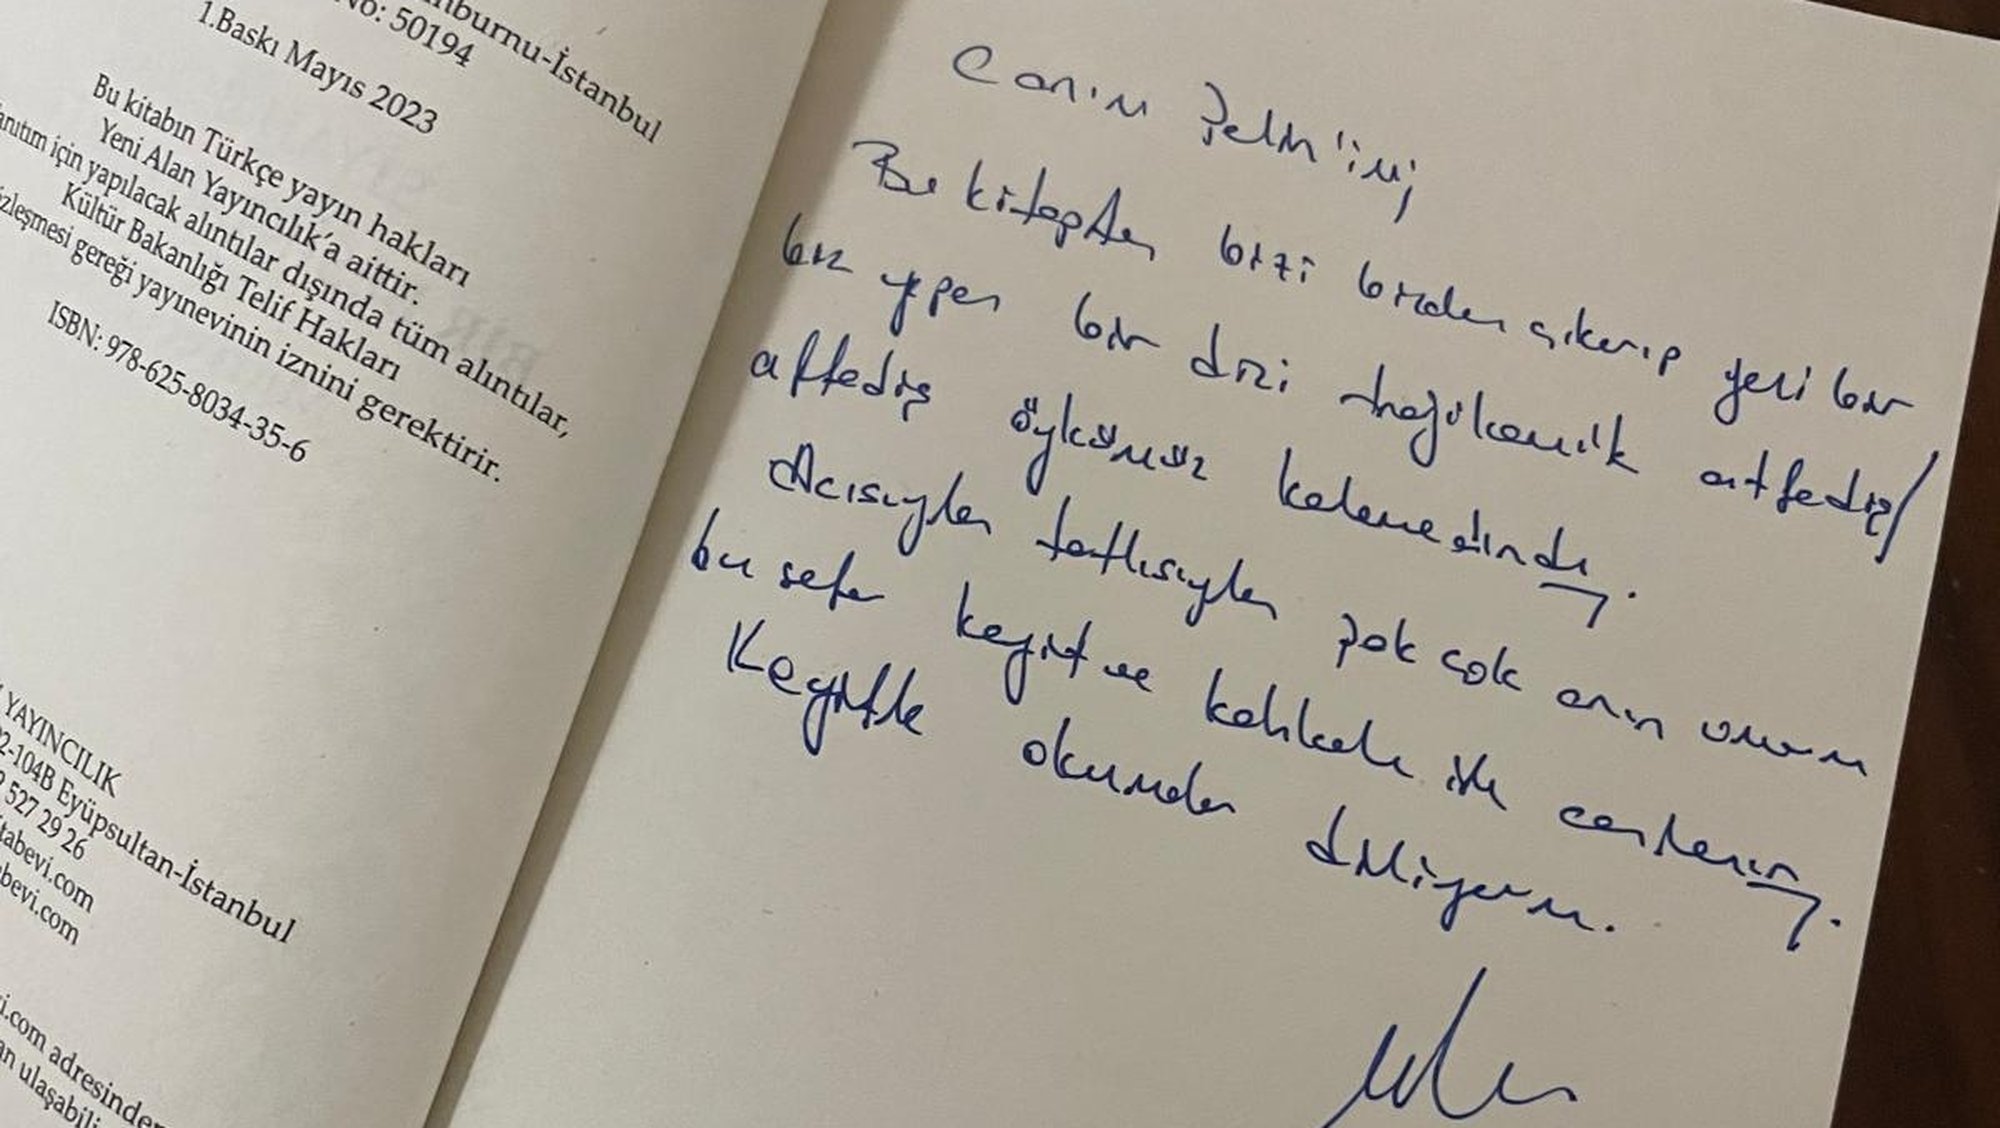 nburnu-İstanbul
No: 50194
1.Baskı Mayıs 2023
Bu kitabın Türkçe yayın hakları
Yeni Alan Yayıncılık'a aittir.
anıtım için yapılacak alıntılar dışında tüm alıntılar,
Kültür Bakanlığı Telif Hakları
özleşmesi gereği yayınevinin iznini gerektirir.
ISBN: 978-625-8034-35-6
YAYINCILIK
2-104B Eyüpsultan-İstanbul
527 29 26
tabevi.com
ebevi.com
i.com adresinden
an ulaşabili
Canım
Bu kitapta bizi bizden çıkarıp yeni bir
biz yapan bir dizi atfediş/
affediş öykümüz kaleme alındı.
Acısıyla tatlısıyla pek çok anın umarım
bu sefer keyif ve kahkaha ile canlanır.
Keyifle okumalar diliyorum.